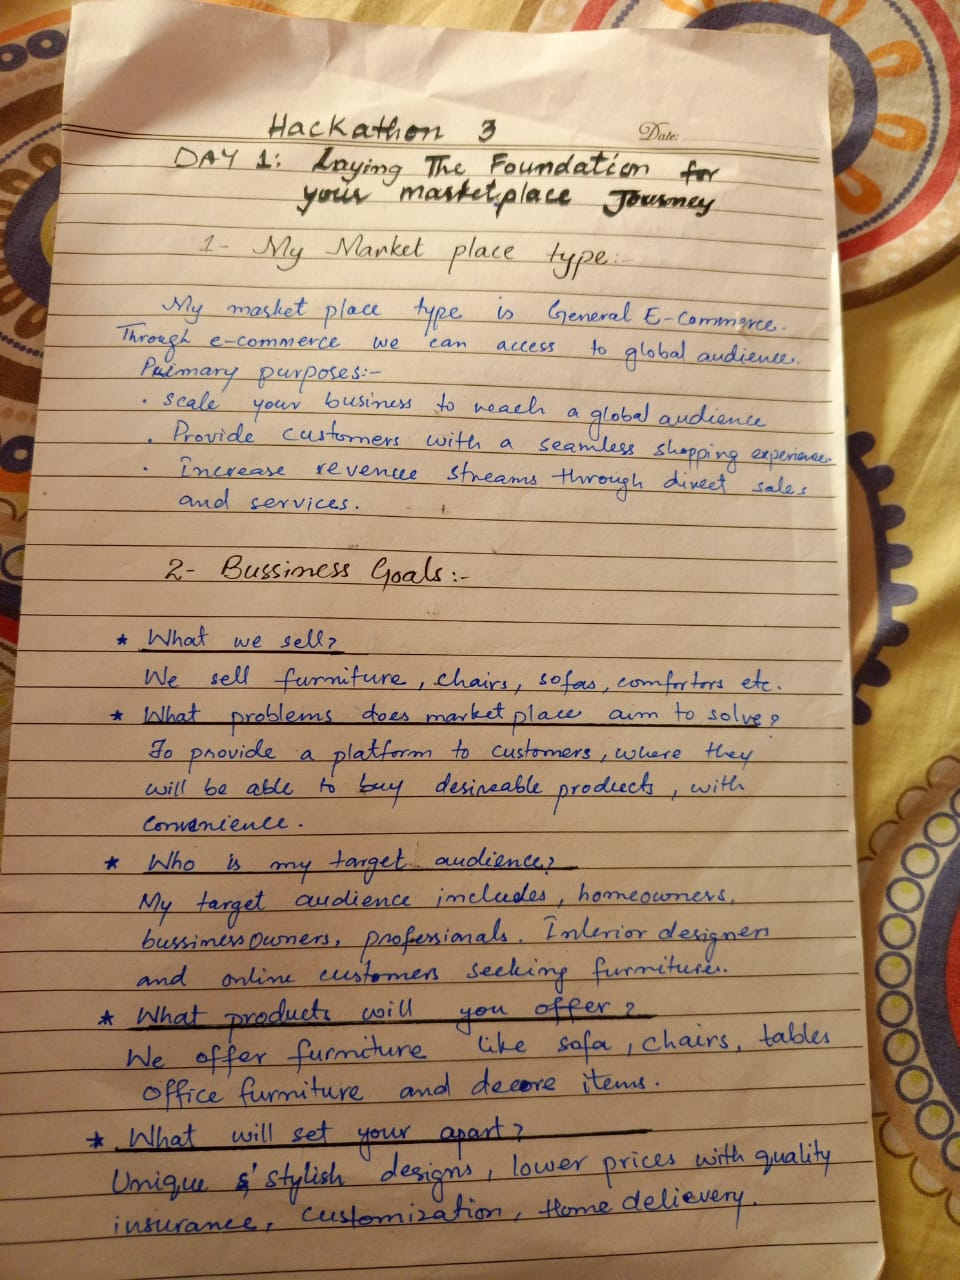 Hackathon 3
Date:
DAY 1: Laying The Foundation for
your marketplace Journey
1- My Market place type:-
My market place type is General E-Commerce.
Through e-commerce we can access to global audience.
Primary purposes:-
. Scale your business to reach a global audience
. Provide customers with a seamless shopping experience.
. Increase revenue streams through direct sales
and services.
2- Bussiness Goals:-
* What we sell?
We sell furniture, chairs, sofas, comfortors etc.
* What problems does market place aim to solve?
To provide a platform to customers, where they
will be able to buy desireable products, with
convenience.
* Who is my target audience?
My target audience includes, homeowners,
bussiness owners, professionals. Interior designers
and online customers seeking furnitures.
* What products will you offer?
We offer furniture like sofa, chairs, tables
office furniture and decore items.
* What will set your apart?
Unique & stylish designs, lower prices with quality
insurance, customization, Home delievery.